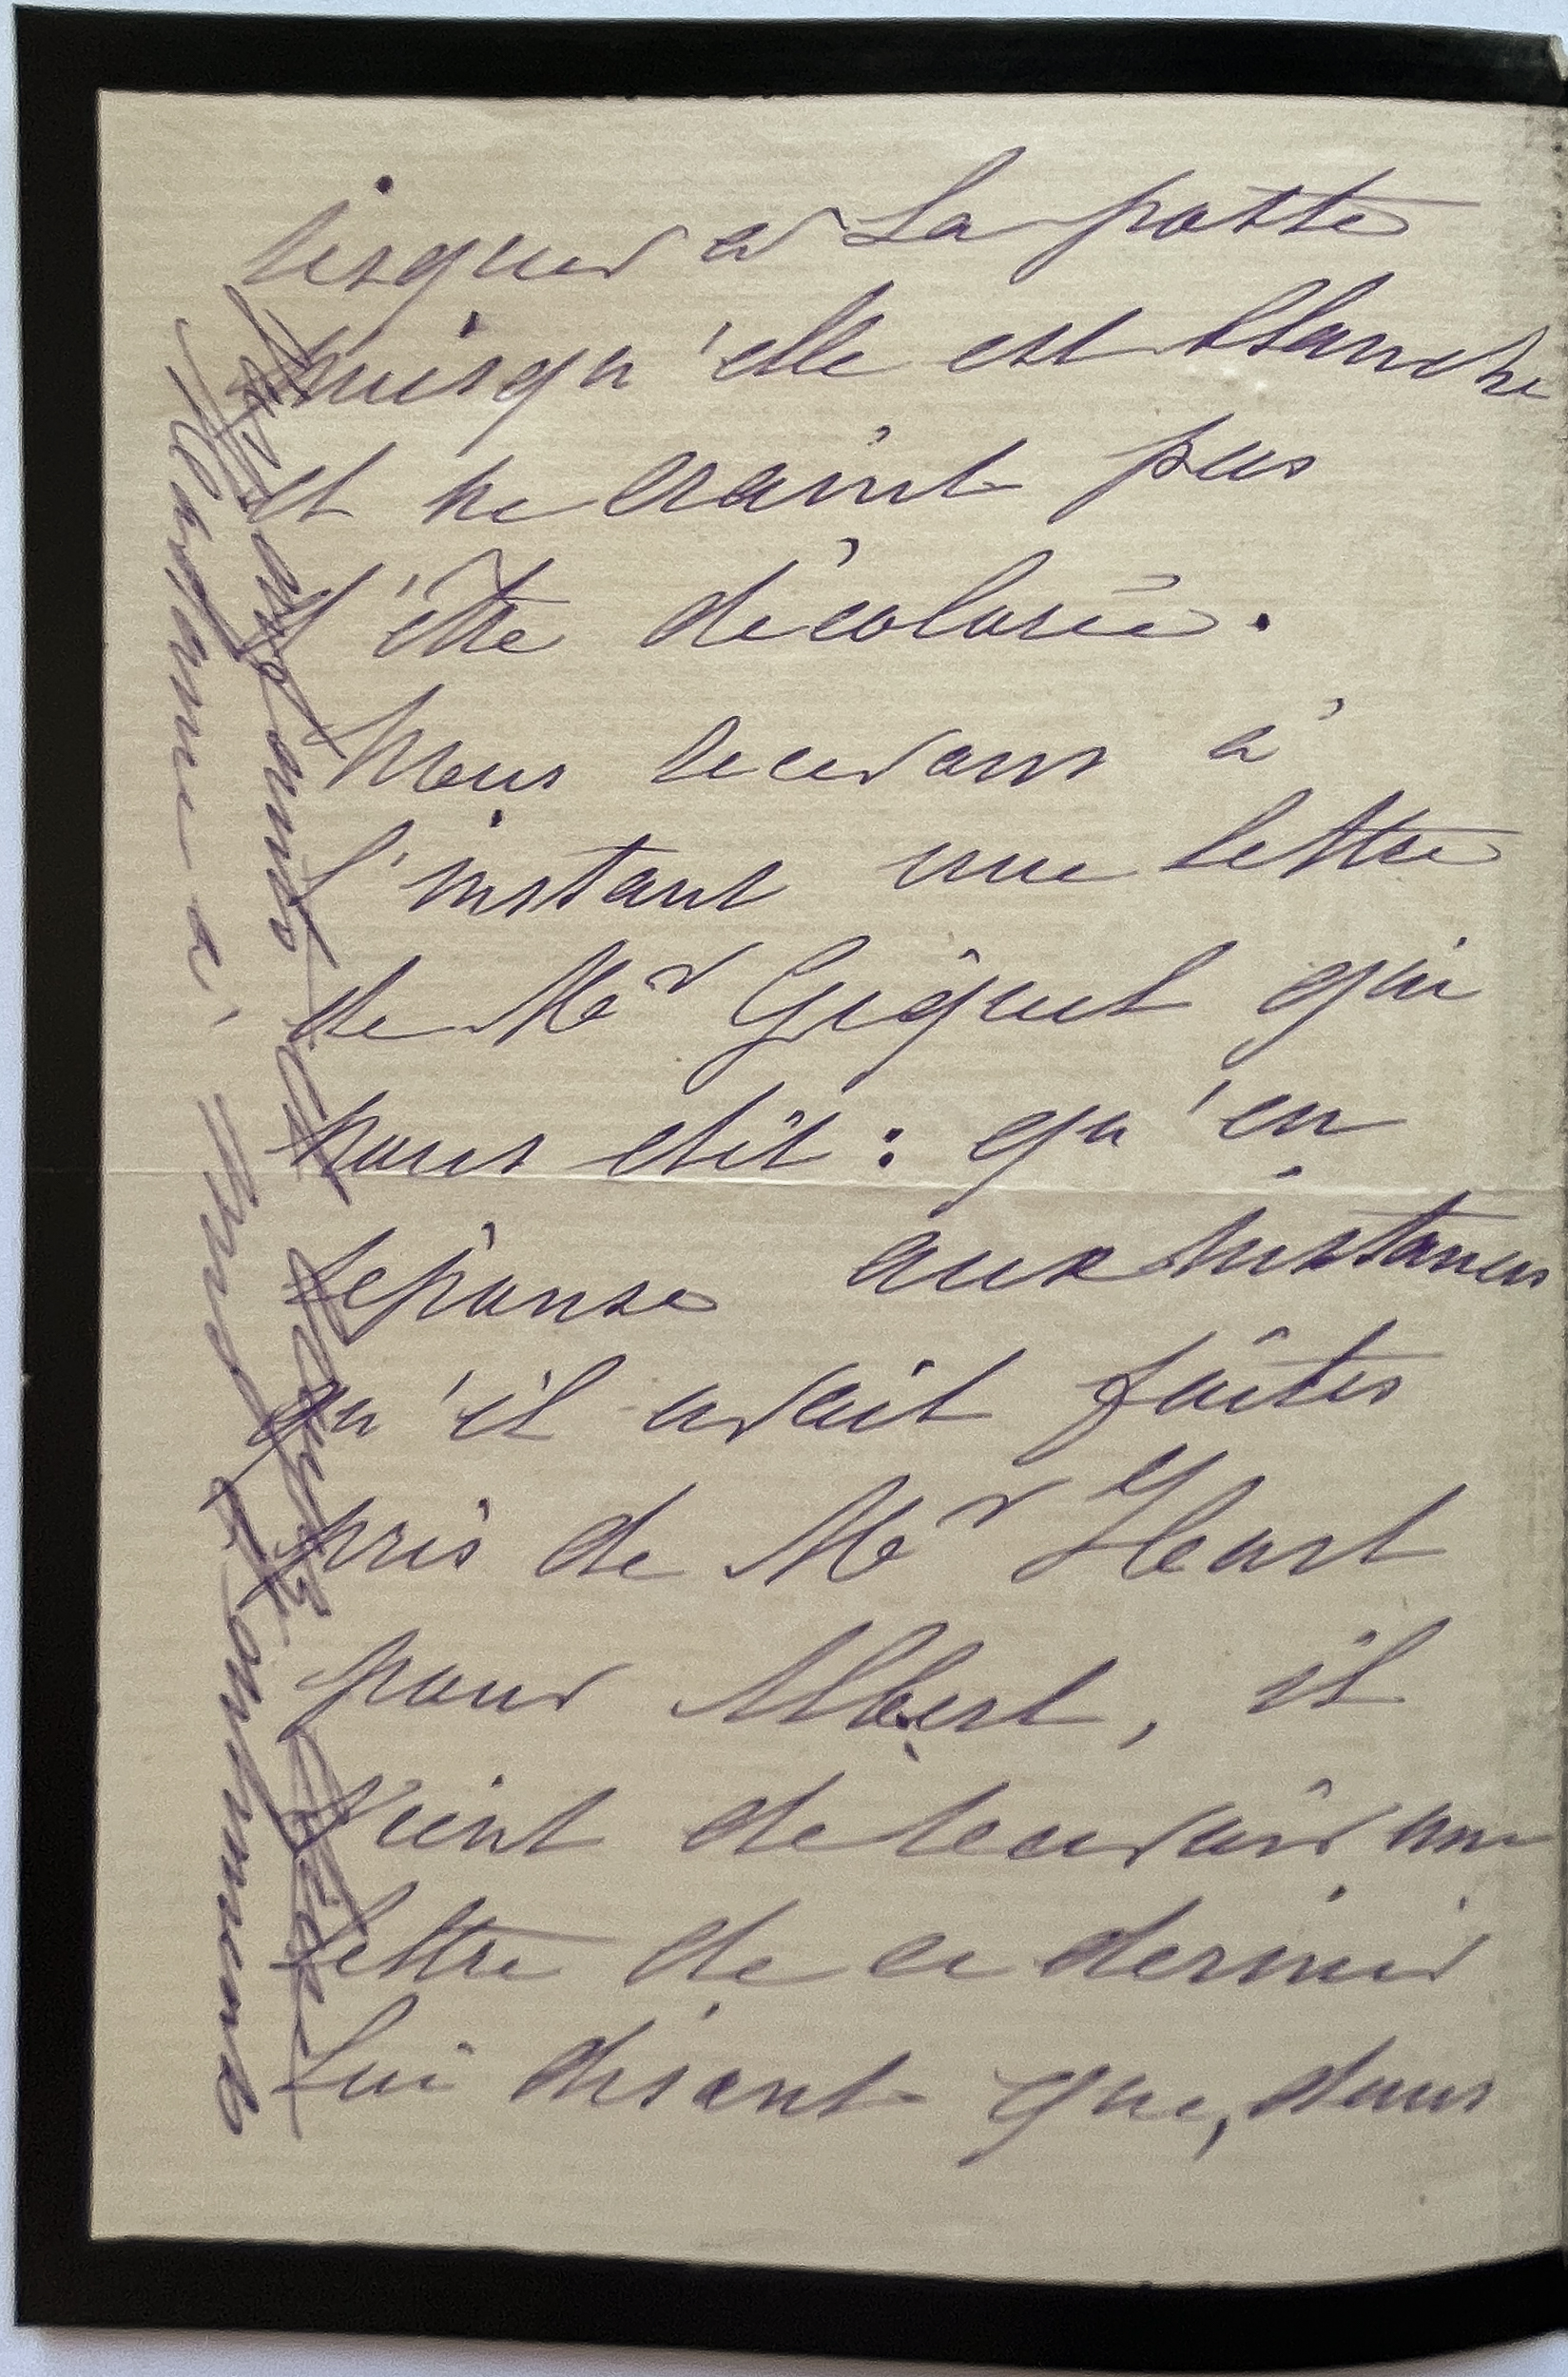 risquer à la poste
puisqu'elle est blanche
et ne craint pas
d'être décolorée.
Nous recevons à
l'instant une lettre
de Mr Giguet qui
nous dit : qu'en
réponse aux instances
qu'il avait faites
près de Mr Heart
pour Albert, il
vient de recevoir une
lettre de ce dernier
lui disant que, dans